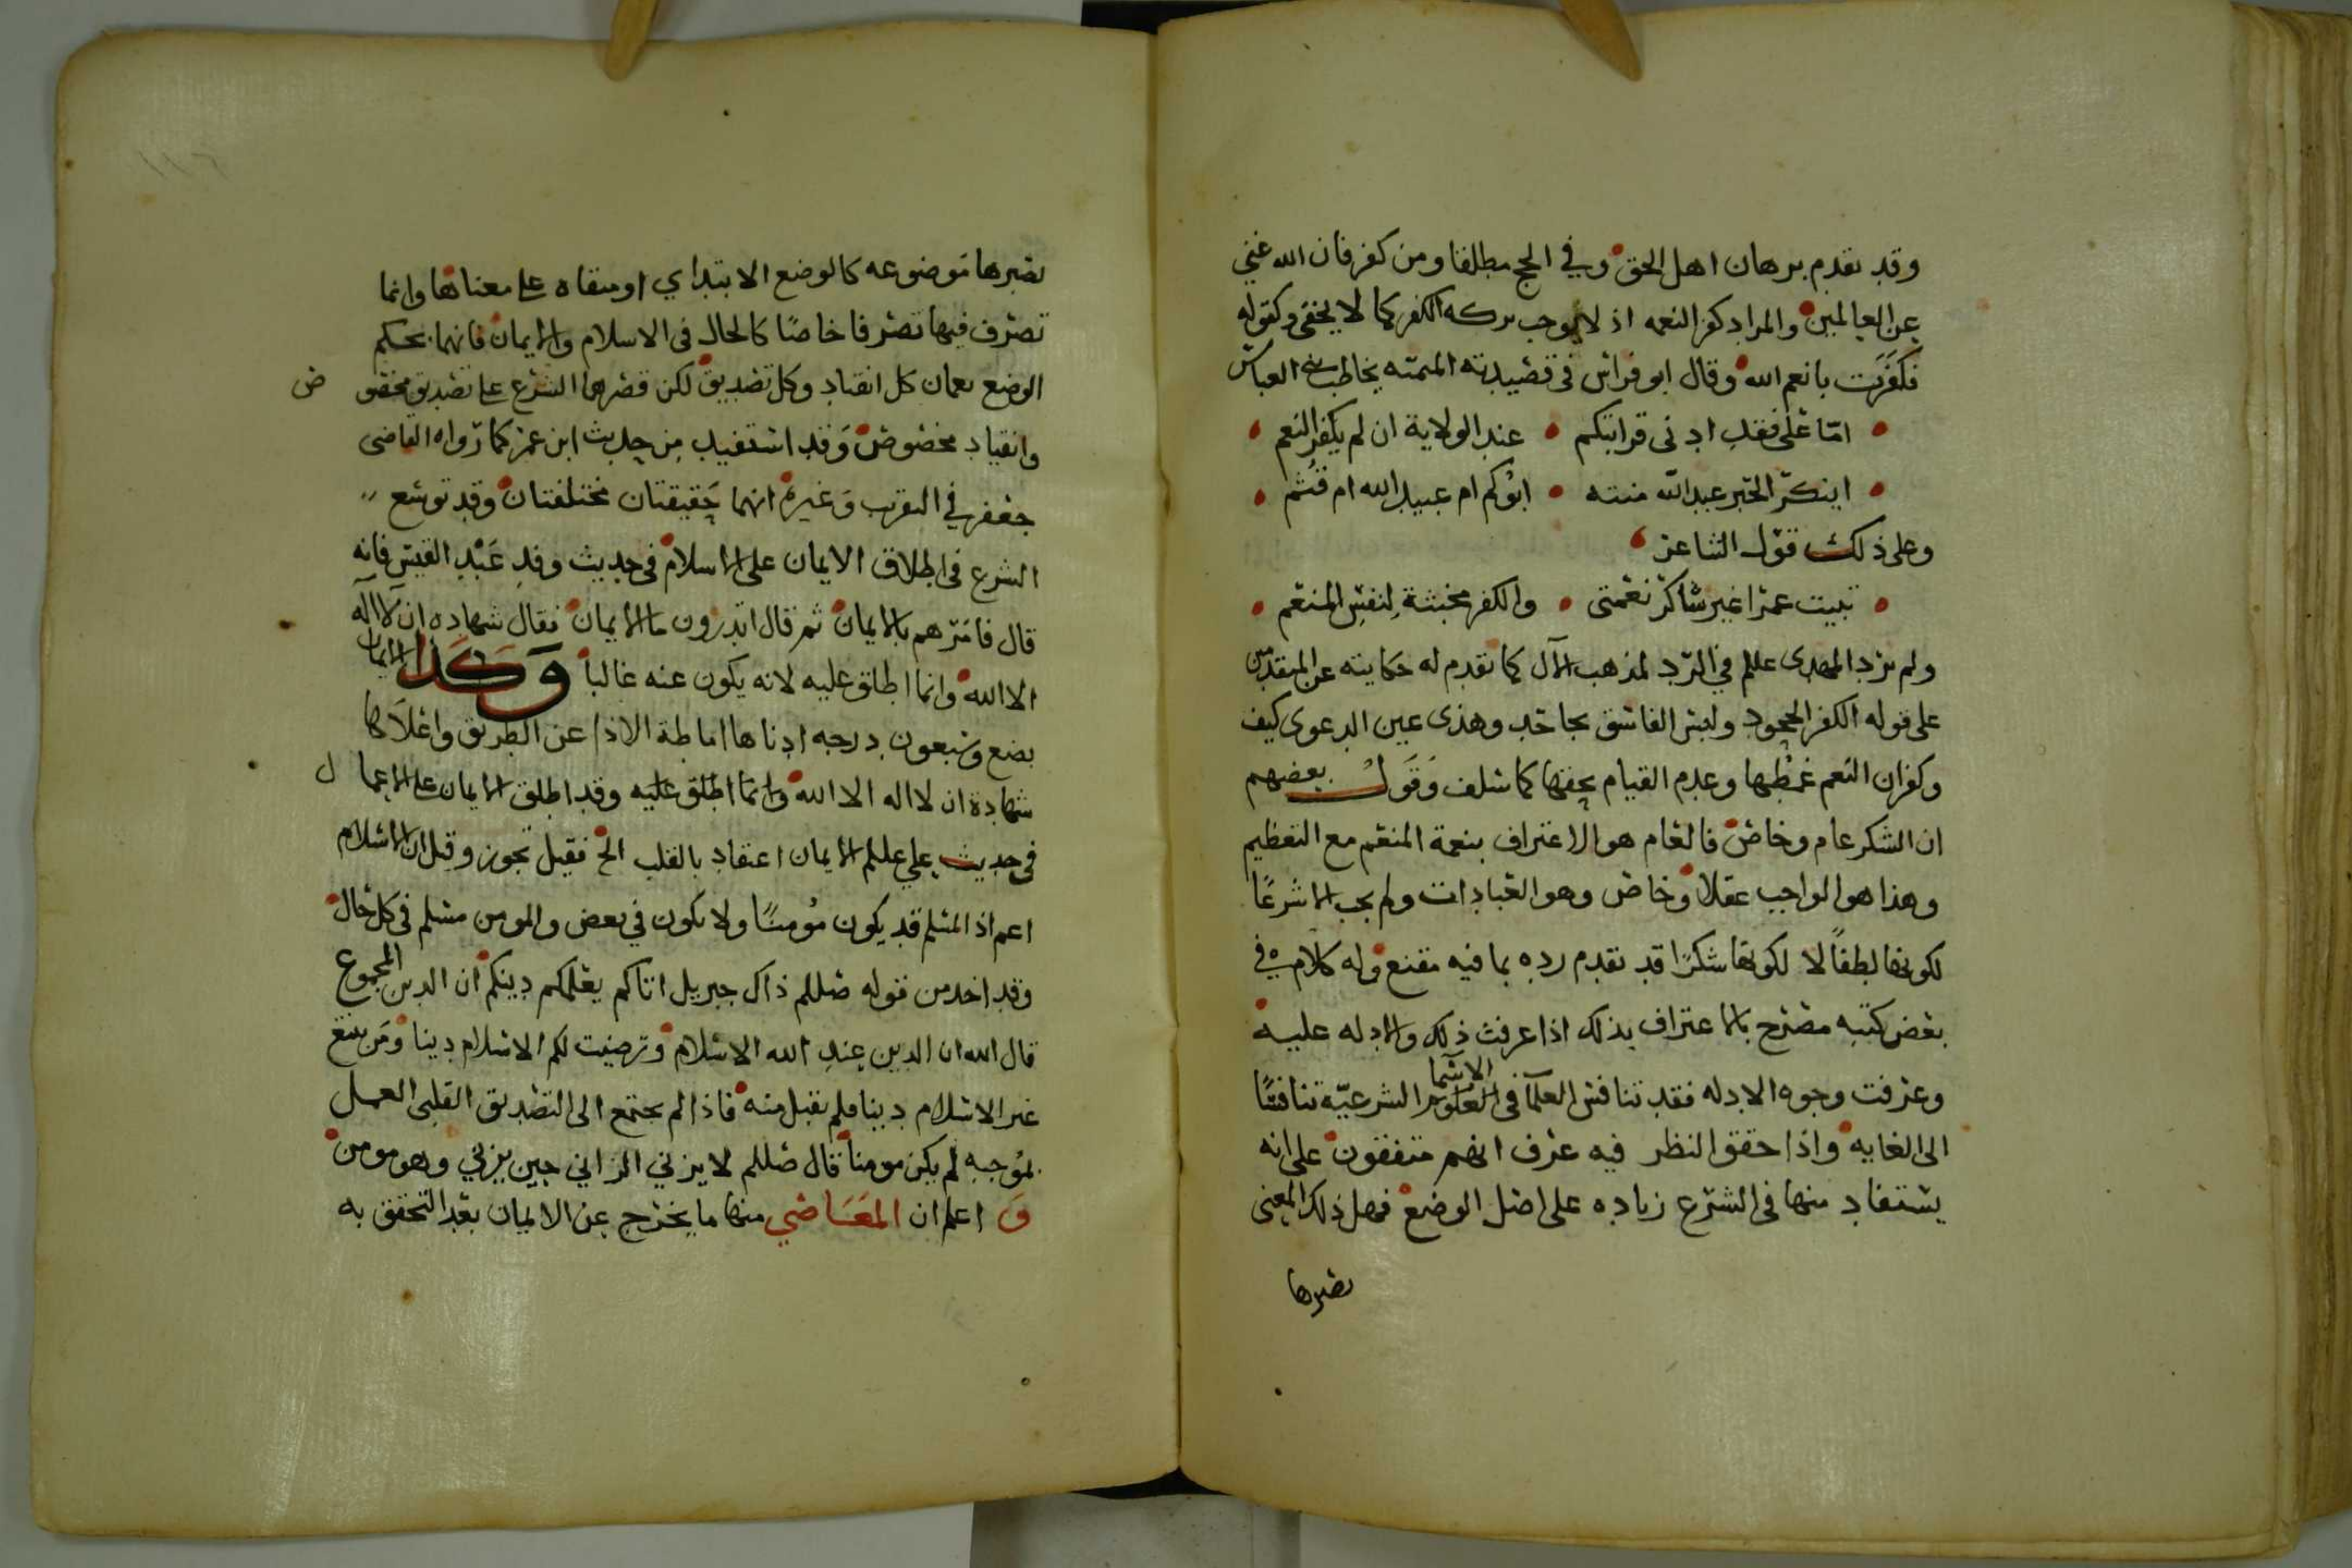 وقد تقدم برهان اهل الحق وفي الحج مطلقا ومن كفر فان الله غني
عن العالمين والمراد كفر النعمه اذ لا يوجب تركه الكفر كما لا يخفى وكقوله
فكفرت بانعم الله وقال ابو فراس في قصيدته الميميه يخاطب بني العباس
امّا علي فقد ادنى قرابتكم عند الولاية ان لم يكفر النعم
اينكر الحبر عبد الله منته ابوكم ام عبيد الله ام قثم
وعلى ذلك قول الشاعر
نبيت عمرا غير شاكر نعمتي والكفر مخبثة لنفس المنعم
ولم يزد المهدى علم في الرد لمذهب الآل كما تقدم له حكايته عن المتقدمين
على قوله الكفر الجحود وليس الفاسق بجاحد وهذى عين الدعوى كيف
وكفران النعم غمطها وعدم القيام بحقها كما سلف وقول بعضهم
ان الشكر عام وخاص فالعام هو الاعتراف بنعمة المنعم مع التعظيم
وهذا هو الواجب عقلا وخاص وهو العبادات ولم يجب الا شرعًا
لكونها لطفًا لا لكونها شكرًا قد تقدم رده بما فيه مقنع وله كلام في
بعض كتبه مصرح بالاعتراف بذلك اذا عرفت ذلك والادله عليه
وعرفت وجوه الادله فقد تنافس العلمآ فى العلوم الاسما الشرعيّة تنافسًا
الى الغايه واذا حقق النظر فيه عرف انهم متفقون على انه
يستفاد منها فى الشرع زياده على اصل الوضع فهل ذلك المعنى
تصيرها
تصيرها موضوعه كالوضع الابتداي او مبقاه على معناها وانما
تصرف فيها تصرفا خاصًا كالحال فى الاسلام والايمان فانهما بحكم
الوضع يعمان كل انقياد وكل تصديق لكن قصرهما الشرع على تصديق مخصوص
وانقياد مخصوص وقد استفيد من حديث ابن عمر كما رواه القاضى
جعفر في التقريب وغيره انهما حقيقتان مختلفتان وقد توسع
الشرع فى اطلاق الايمان على الاسلام فى حديث وفد عبد القيس فانه
قال فامرهم بالايمان ثم قال اتدرون ما الايمان فقال شهاده ان لا اله
الا الله وانما اطلق عليه لانه يكون عنه غالبا وكذا الايمان
بضع وسبعون درجه ادناها اماطة الاذا عن الطريق واعلاها
شهادة ان لا اله الا الله وانما اطلق عليه وقد اطلق الايمان على الاعمال
فى حديث علي علم الايمان اعتقاد بالقلب الخ فقيل تجوز وقيل ان الاسلام
اعم اذ المسلم قد يكون مؤمنًا ولا يكون في بعض والمومن مسلم فى كل حال
وقد اخذ من قوله صللم ذاك جبريل اتاكم يعلمكم دينكم ان الدين المجموع
قال الله ان الدين عند الله الاسلام ورضيت لكم الاسلام دينا ومن يبتغ
غير الاسلام دينا فلم يقبل منه فاذا لم يجتمع الى التصديق القلبى العمل
بموجبه لم يكن مومنا قال صللم لا يزني الزاني حين يزني وهو مومن
و اعلم ان المعاصي منها ما يخرج عن الايمان بعد التحقق به